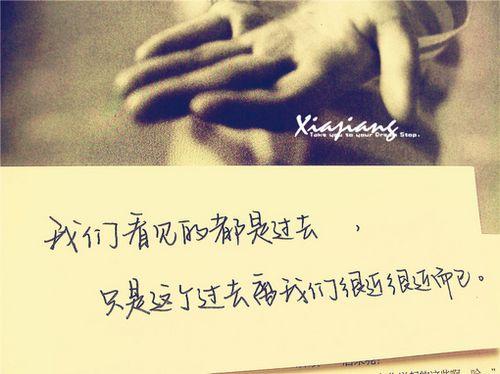 Xiajiang
Take you to your Dream Stop.
我们看见的都是过去，
只是这个过去离我们很近很近而已。